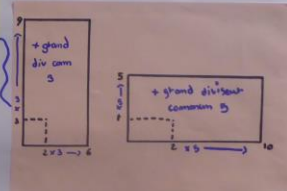 9
+ grand
div com
3
x 3
3
2 x3 → 6
5
+ grand diviseur
commun 5
x 5
2 x5 → 10